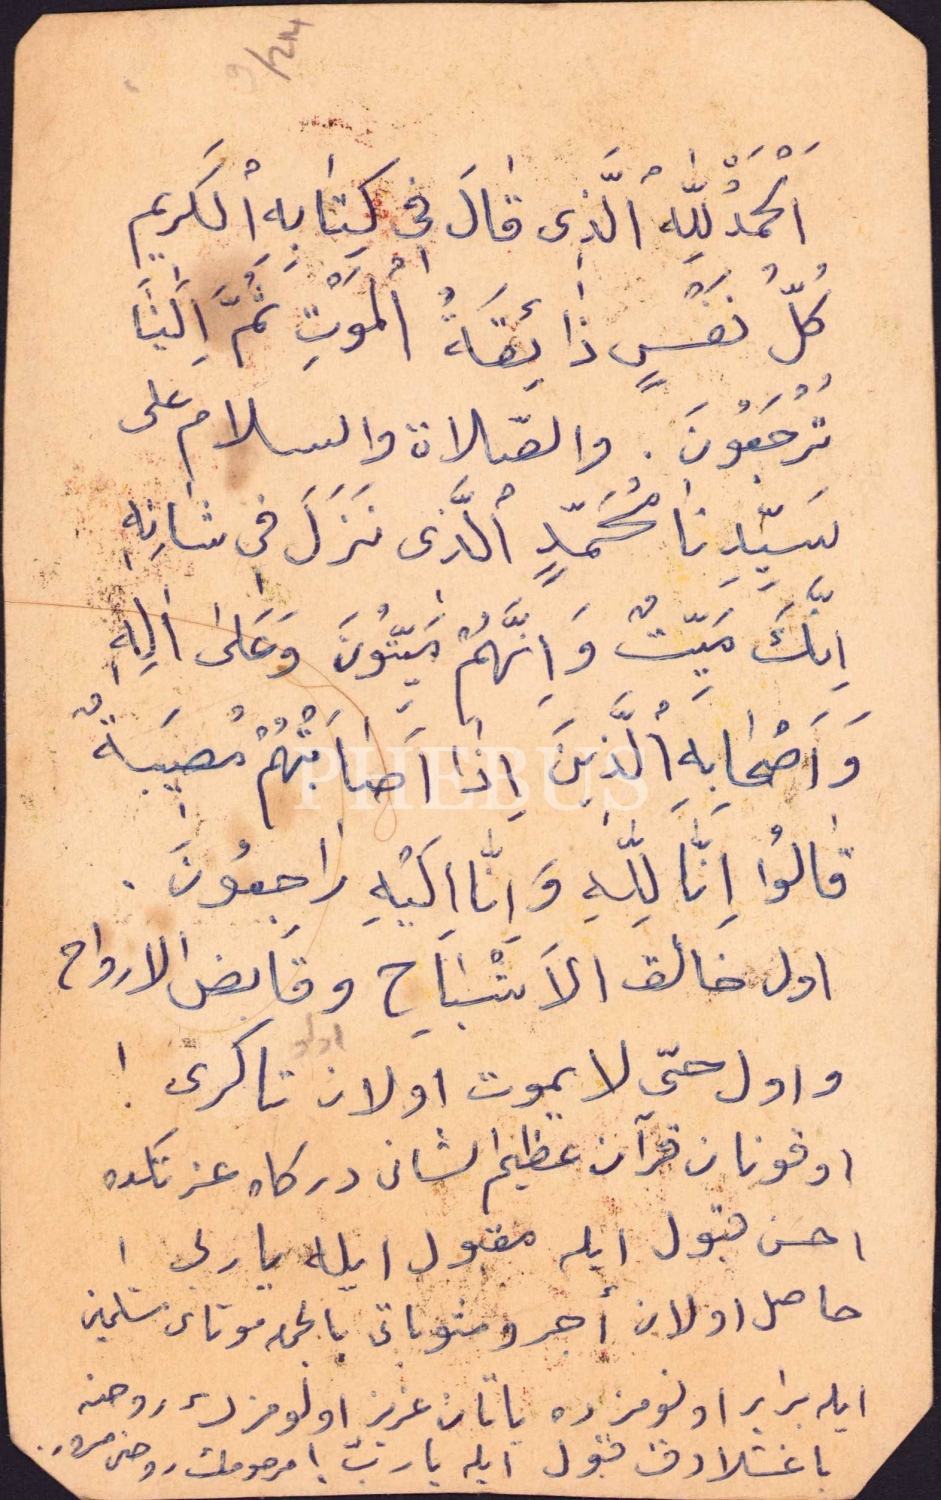 9/214
اَلْحَمْدُ لِلّٰهِ الَّذى قَالَ فِى كِتَابِهِ الْكَرِيم
كُلُّ نَفْسٍ ذَائِقَةُ الْمَوْتِ ثُمَّ اِلَيْنَا
تُرْجَعُونَ . والصّلاة والسلام على
سَيِّدِنَا مُحَمَّدٍ الَّذى نَزَلَ فى شَانِهِ
اِنَّكَ مَيِّتٌ وَاِنَّهُمْ مَيِّتُونَ وَعَلىٰ اٰلِهِ
وَاَصْحَابِهِ الَّذِينَ اِذَا اَصَابَتْهُمْ مُصِيبَةٌ
PHEBUS
قَالُوا اِنَّا لِلّٰهِ وَاِنَّا اِلَيْهِ رَاجِعُونَ .
اول خالق الاَشْبَاحِ وقابض الارواح
و اول حىّ لايموت اولان تاكرى !
اوقونان قرآن عظيم الشانى دركاه عزتكده
احسن قبول ايله مقبول ايله ياربى !
حاصل اولان أجر و مثوباتى موتاى مسلمين
ايله برابر اولومزده ياتان عزيز اولومزك روحنه
باغشلادق قبول ايله يارب ! مرحومك روحنى